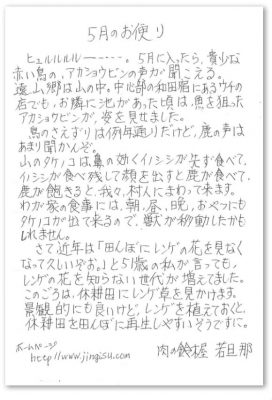 5月のお便り
ヒュルルルルー----。5月に入ったら、貴少な
赤い鳥の、アカショウビンの声が聞こえる。
遠山郷は山の中。中心部の和田宿にあるウチの
店でも、お隣に池があった頃は、魚を狙った
アカショウビンが、姿を見せました。
鳥のさえずりは例年通りだけど、鹿の声は
あまり聞かんぞ。
山のタケノコは鼻の効くイノシシが先ず食べて、
イノシシが食べ残して顔を出すと鹿が食べて、
鹿が飽きると、我々、村人にまわって来ます。
わが家の食事には、朝、昼、晩、おやつにも
タケノコが出て来るので、獣が移動したかも
しれません。
さて近年は「田んぼにレンゲの花を見なく
なって久しいぞお。」と51歳の私が言っても、
レンゲの花を知らない世代が増えてました。
このごろは、休耕田にレンゲ草を見かけます。
景観的にも良いけど、レンゲを植えておくと、
休耕田を田んぼに再生しやすいそうですに。
ホームページ
http://www.jingisu.com/
肉の鈴木屋 若旦那